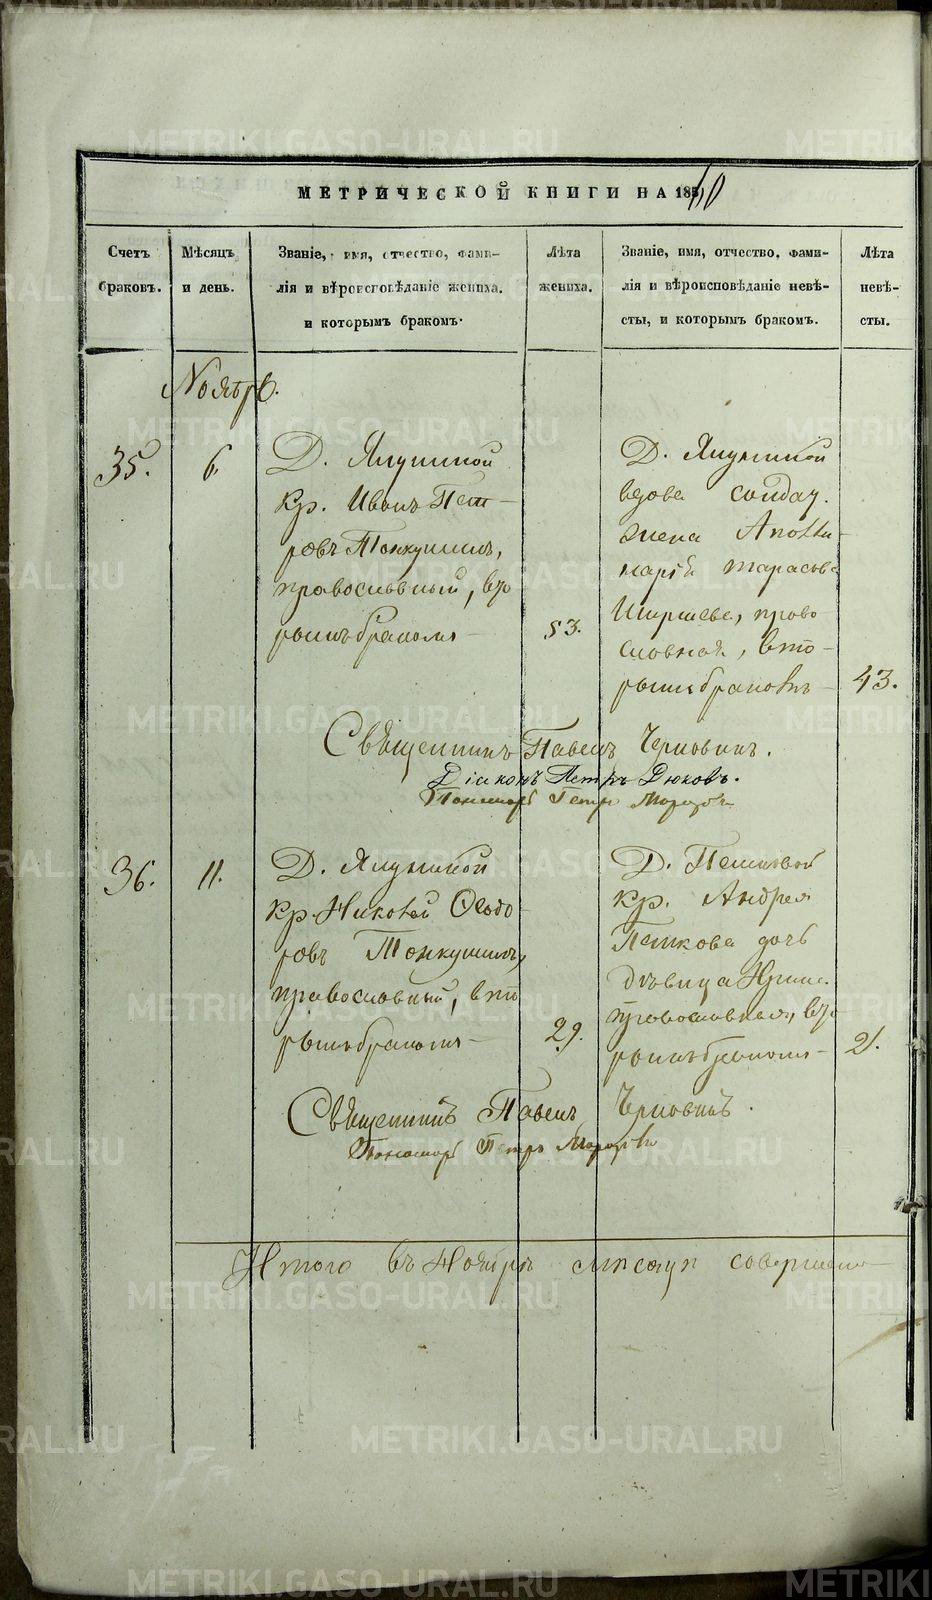 МЕТРИЧЕСКОЙ КНИГИ НА 18
Счетъ браковъ.
Мѣсяцъ и день.
Званіе, имя, отчество, фами-
лія и вѣроисповѣданіе жениха,
и которымъ бракомъ.
Лѣта жениха.
Званіе, имя, отчество, фами-
лія и вѣроисповѣданіе невѣ-
сты, и которымъ бракомъ.
Лѣта невѣ-
сты.
Ноябрь.
35.
6.
Д.
Кр. Иванъ Пет-
ровъ Тонкушинъ,
православный, вто
рымъ бракомъ
53.
Д.
вдова солдат.
жена Аполли-
нарія Тарасова
право
славная, вто-
рымъ бракомъ
43.
Священникъ Павелъ
Діаконъ Петръ Дюковъ.
Пономарь Петръ
36.
11.
Д.
Кр. Николай Ѳедо
ровъ Тонкушинъ,
православный, вто
рымъ бракомъ
29.
Д.
Кр. Андрея
Пешкова дочь
дѣвица
православная,
бракомъ
21.
Священникъ Павелъ
Пономарь Петръ
Итого въ Ноябрѣ мѣсяцѣ
METRIKI.GASO-URAL.RU